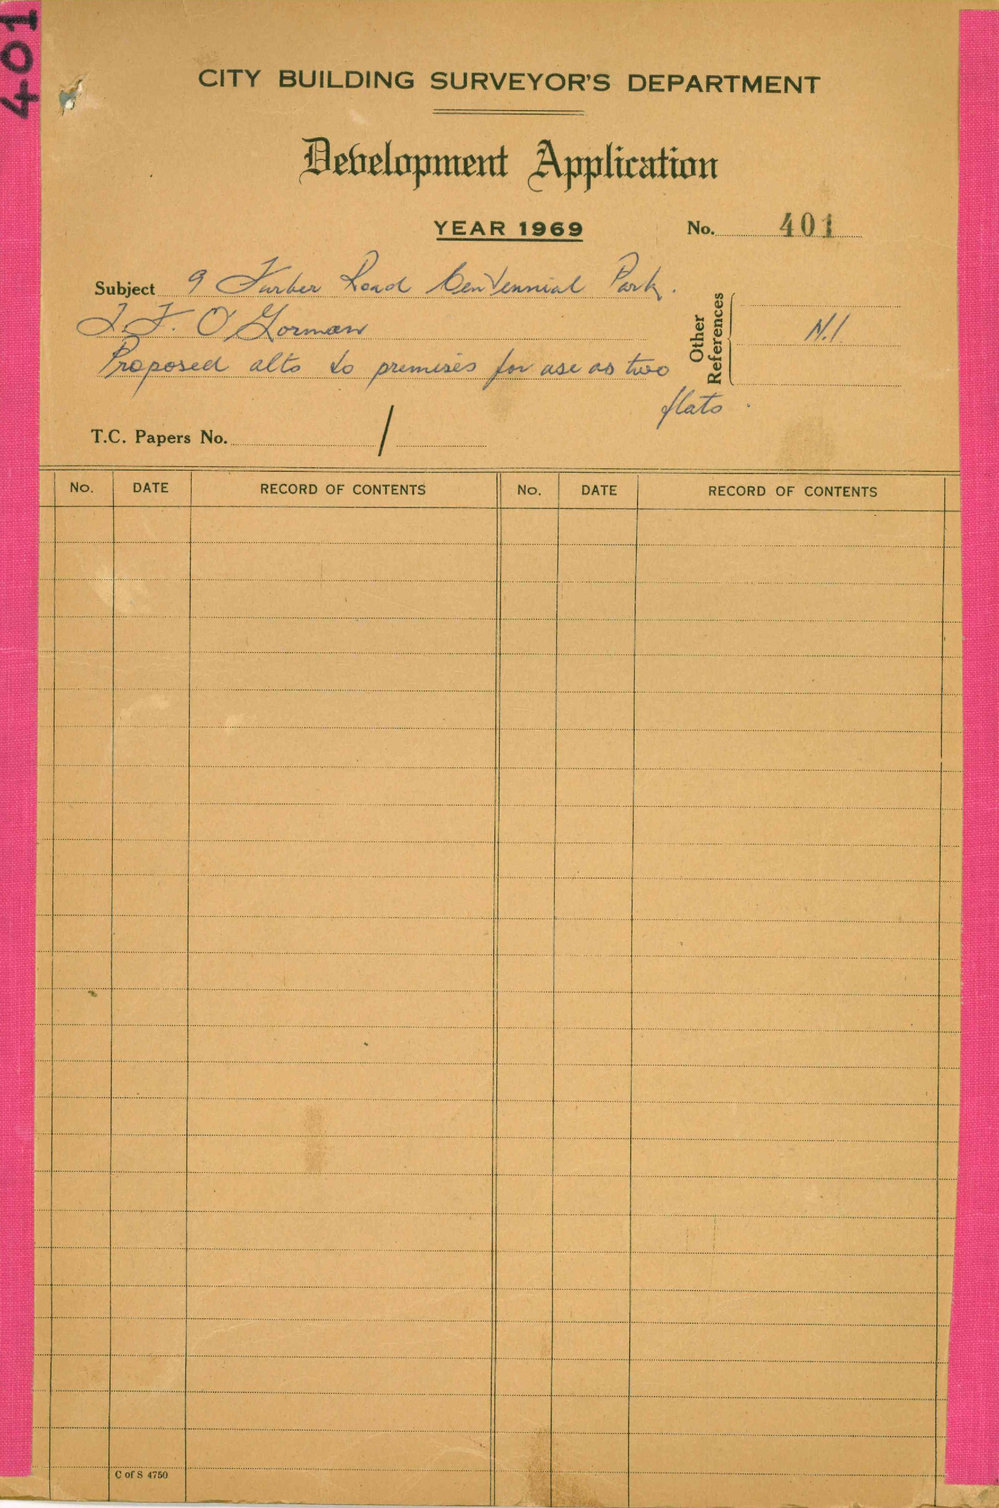 401
CITY BUILDING SURVEYOR'S DEPARTMENT
Development Application
YEAR 1969
No. 401
Subject 9 Furber Road Centennial Park.
O'Gorman
Proposed alts to premises for use as two
flats.
Other References
N.1.
T.C. Papers No. /
No. DATE RECORD OF CONTENTS No. DATE RECORD OF CONTENTS
C of S 4750